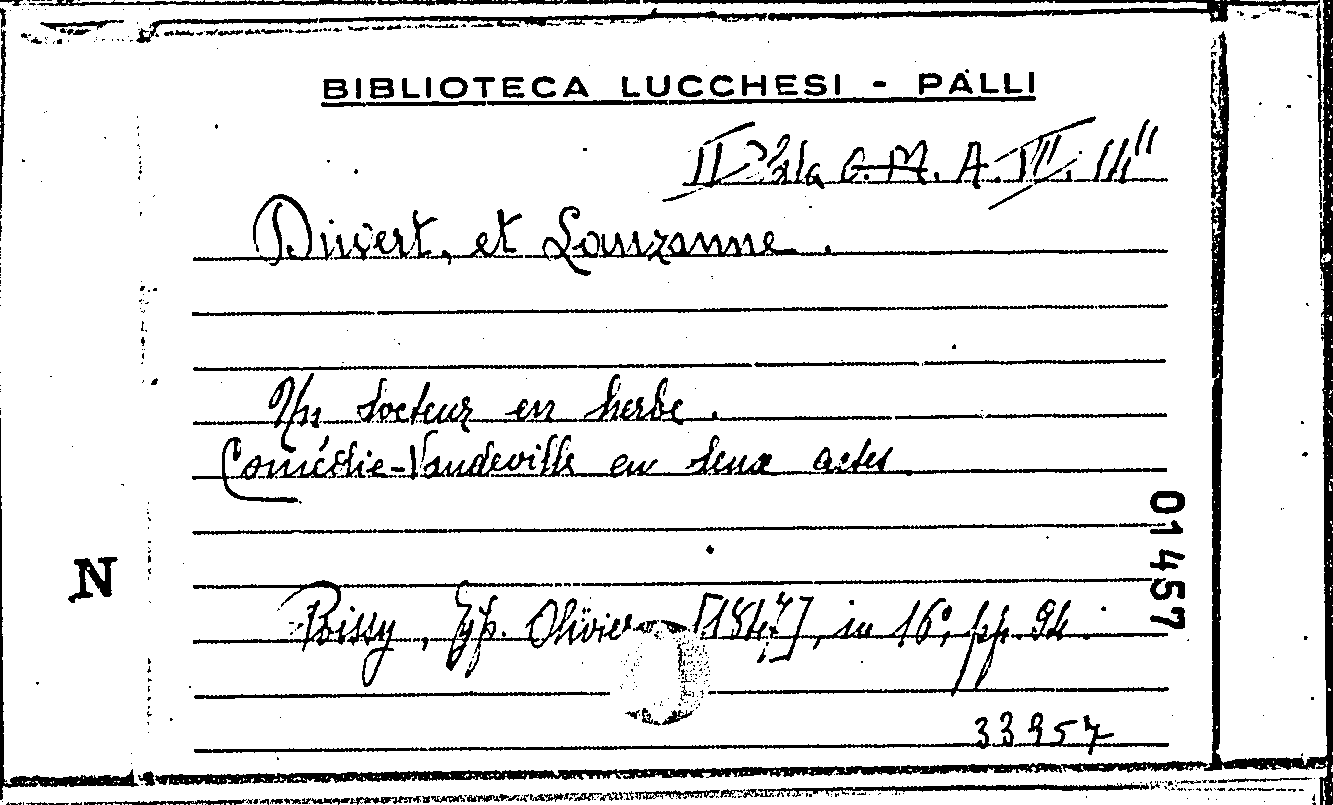 BIBLIOTECA LUCCHESI - PALLI
A. VII. 14"
Duvert, et Lauzanne.
Un docteur en herbe.
Comédie-Vaudeville en deux actes.
01457
N
Poissy, Typ. Olivier [1847], in 16°, pp. 94.
33957